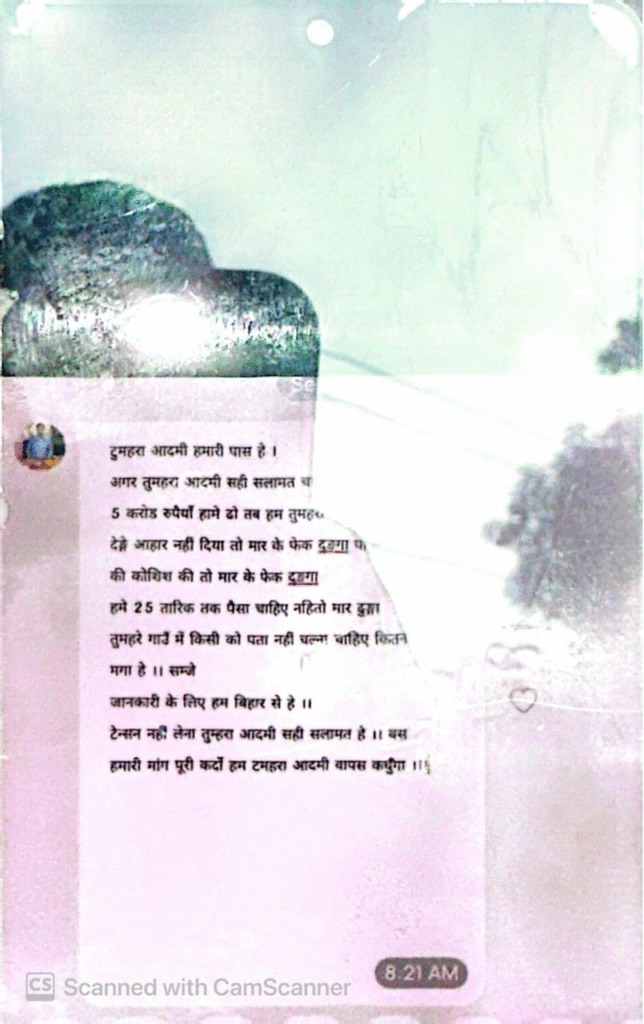 टुमहरा आदमी हमारी पास हे ।
अगर तुमहरा आदमी सही सलामत
5 करोड रुपैयाँ हामे ढो तब हम
देङ्गे आहार नहीं दिया तो मार के फेक दुङगा
की कोशिश की तो मार के फेक दुङगा
हमे 25 तारिक तक पैसा चाहिए नहितो मार दुङ्गा
तुमहरे गाउँ में किसी को पता नहीं चलना चाहिए
मगा हे ।। सम्जे
जानकारी के लिए हम बिहार से हे ।।
टेन्सन नहीं लेना तुम्हरा आदमी सही सलामत हे ।। बस
हमारी मांग पूरी कर्दो हम टमहरा आदमी वापस कर्धुँगा ।।
8:21 AM
CS Scanned with CamScanner